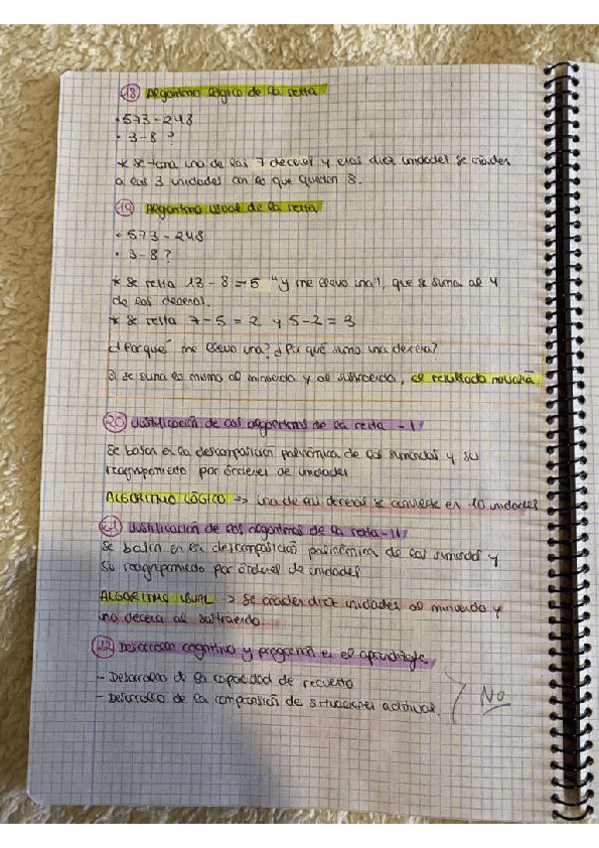 18) Algoritmo lógico de la resta
• 573 - 248
• 3 - 8 ?
* Se toma una de las 7 decenas y esas diez unidades se añaden
a las 3 unidades con lo que quedan 8.
19) Algoritmo usual de la resta
• 573 - 248
• 3 - 8 ?
* Se resta 13 - 8 = 5 "y me llevo una", que se suma al 4
de las decenas.
* Se resta 7 - 5 = 2 y 5 - 2 = 3
¿Por qué me llevo una? ¿Por qué sumo una decena?
Si se suma lo mismo al minuendo y al sustraendo, el resultado no varía
20) Justificación de los algoritmos de la resta - I
Se basan en la descomposición polinómica de los sumandos y su
reagrupamiento por órdenes de unidades
ALGORITMO LÓGICO => una de las decenas se convierte en 10 unidades
21) Justificación de los algoritmos de la resta - II
Se basan en la descomposición polinómica de los sumandos y
su reagrupamiento por órdenes de unidades
ALGORITMO USUAL -> Se añaden diez unidades al minuendo y
una decena al sustraendo.
22) Desarrollo cognitivo y progresión en el aprendizaje
- Desarrollo de la capacidad de recuento
- Desarrollo de la comprensión de situaciones aditivas.
No